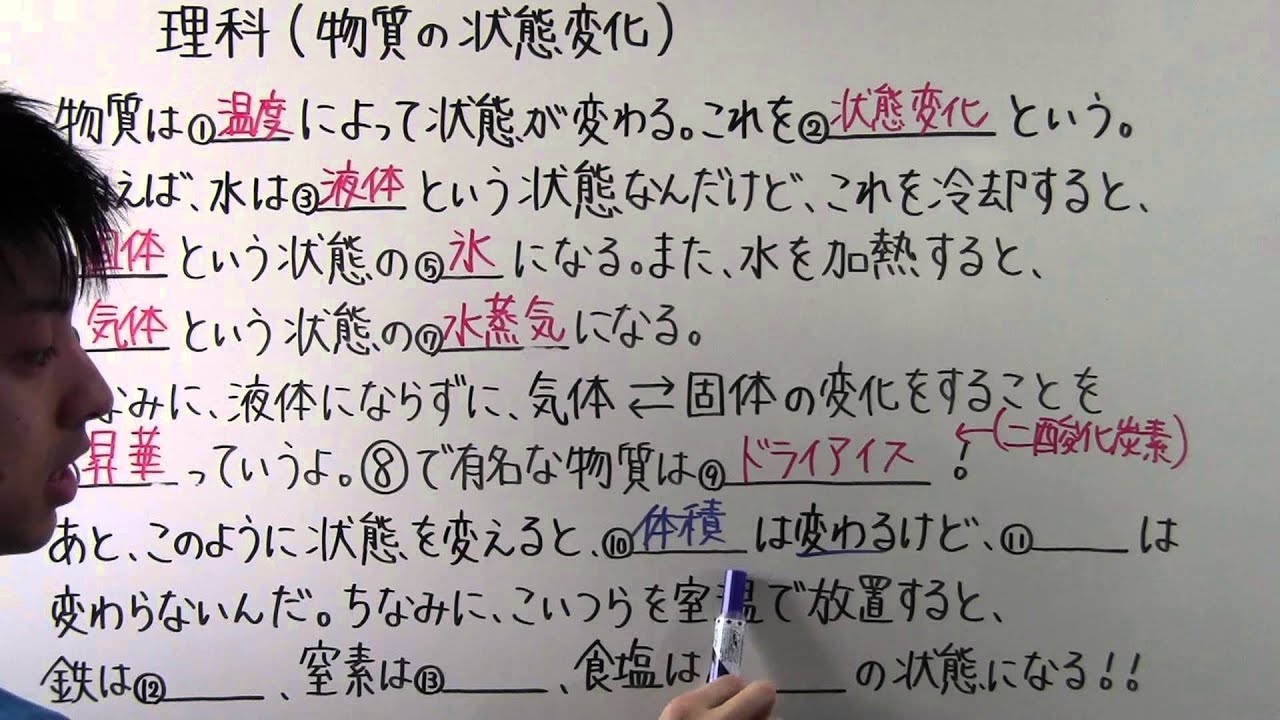 理科(物質の状態変化)
物質は①温度によって状態が変わる。これを②状態変化という。
えば、水は③液体という状態なんだけど、これを冷却すると、
固体という状態の⑤氷になる。また、水を加熱すると、
気体という状態の⑦水蒸気になる。
なみに、液体にならずに、気体⇄固体の変化をすることを
昇華っていうよ。⑧で有名な物質は⑨ドライアイス!←(二酸化炭素)
あと、このように状態を変えると、⑩体積は変わるけど、⑪____は
変わらないんだ。ちなみに、こいつらを室温で放置すると、
鉄は⑫____、窒素は⑬____、食塩は____の状態になる!!